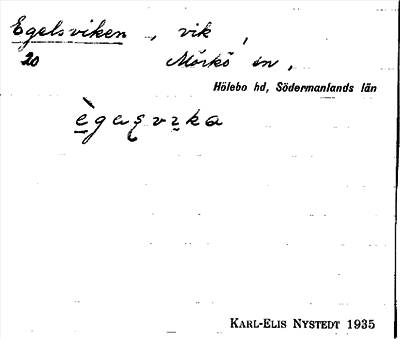 Egelsviken, vik,
20 Mörkö sn,
Hölebo hd, Södermanlands län
ègaʂvıka
KARL-ELIS NYSTEDT 1935